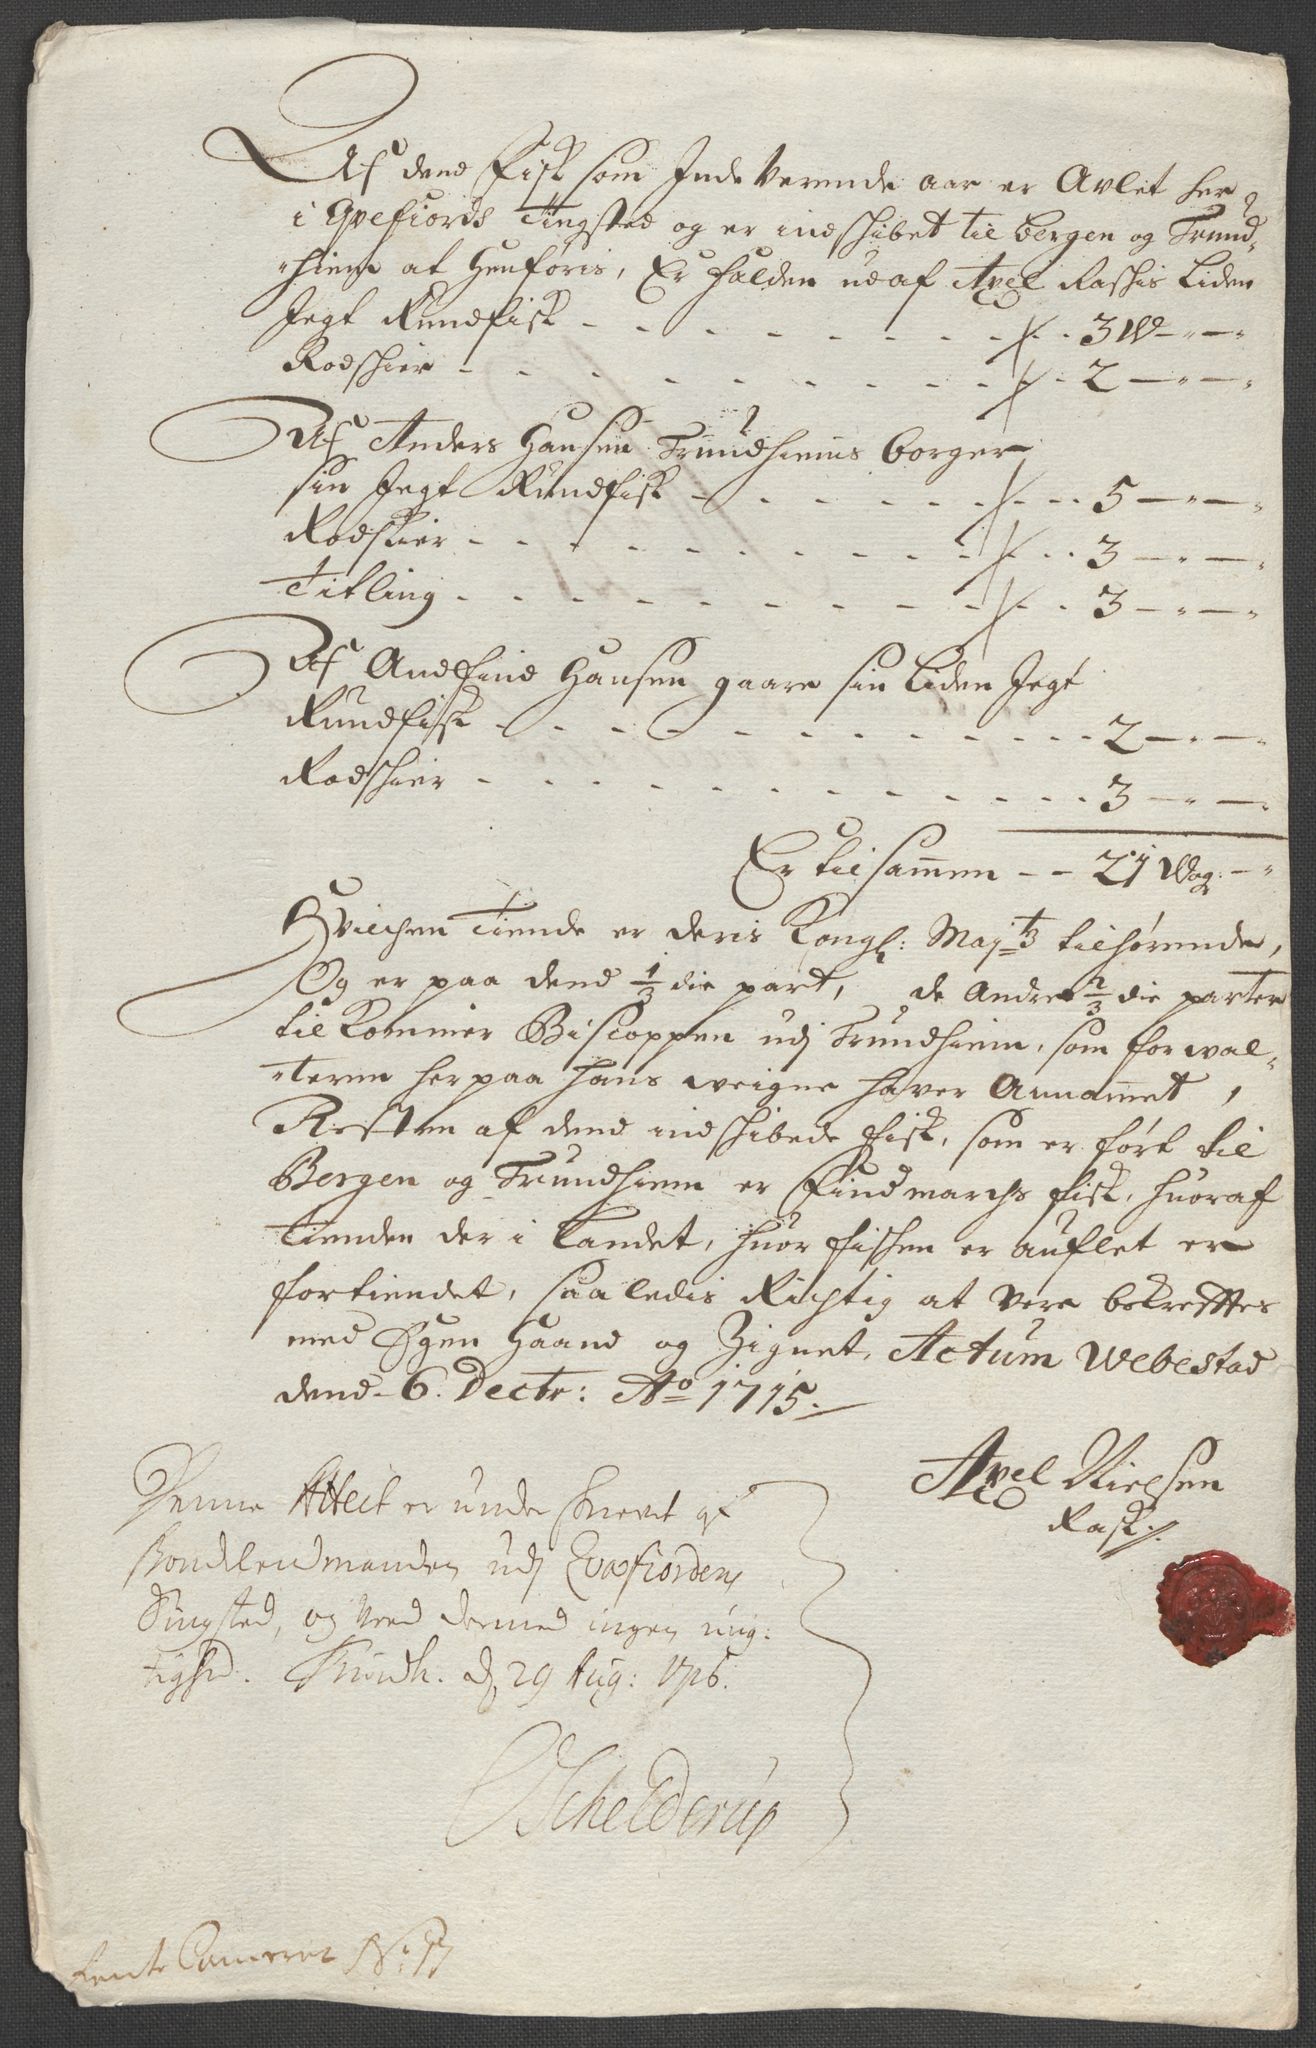 Af dend Fisk som Inde Verende aar er Avlet her
i Qvefiords Tingsted og er indskibet til bergen og Trund-
hiem at henføris, Er falden ud af Axel Raskis Liden
Jegt Rundfisk - - - 3 W - " - "
Rodskier - - - 2 - " - "
Af Anders Hansen Trundhiems borger
sin Jegt Rundfisk - - - 5 - " - "
Rodskier - - - 3 - " - "
Titling - - - 3 - " - "
Af Andfind Hansen gaare sin Liden Jegt
Rundfisk - - - 2 - " - "
Rodskier - - - 3 - " - "
Er tilsammen - - 21 Wog: - "
Hvilchen Tiende er deris Kongl: Maj:ts tilhørende,
Og er paa dend 1/3 die part, de Andre 2/3 die parter
til Kommer Biscoppen udj Trundhiem, som forwal-
teren her paa hans weigne haver Annamet,
Resten af dend indskibede fisk, som er ført til
Bergen og Trundhiem er Findmarchs fisk, huoraf
Tienden der i Landet, huor fisken er auflet er
fortiendet, saaledis Richtig at Vere bekreffter
med Egen Haand og Zignet, Actum Webestad
dend 6. Dectr: Ao 1715.
Axel Nielsen
Rask
Denne Attest er under skrevet af
Bondelendmanden udj Qvæfiordens
Tingsted, og veed dermed ingen urig-
tighed. Trundh. d. 29 Aug: 1716.
Schelderup
Rente Cammeret No: 17